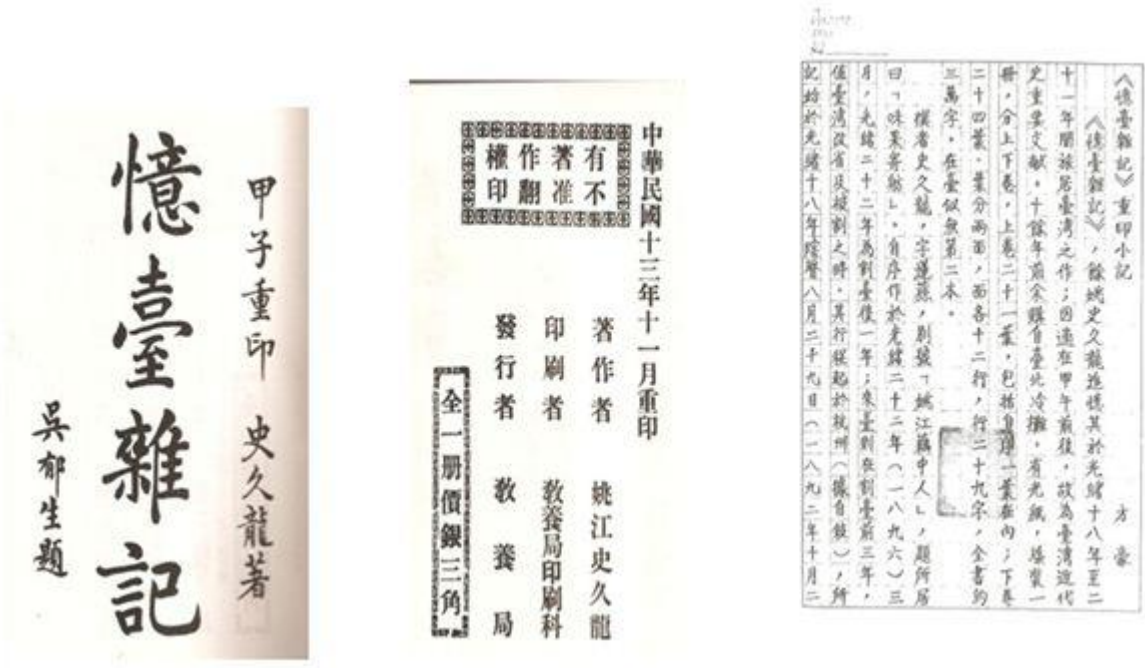 甲子重印 史久龍著
憶臺雜記
吳郁生題
中華民國十三年十一月重印
有著作權
不准翻印
著作者 姚江史久龍
印刷者 教養局印刷科
發行者 教養局
全一册價銀三角
《憶臺雜記》重印小記
方豪
《憶臺雜記》,餘姚史久龍追憶其於光緒十八年至二
十一年間旅居臺灣之作;因適在甲午前後,故為臺灣近代
史重要文獻。十餘年前余購自臺北冷攤,有光紙,線裝一
冊,分上下卷,上卷二十一葉,包括自序一葉在內;下卷
二十四葉。葉分兩面,面各十二行,行二十九字,全書約
三萬字。在臺似無第二本。
撰者史久龍,字蓮蓀,別號「姚江藕中人」,題所居
曰「味果寄舫」。自序作於光緒二十二年(一八九六)三
月,光緒二十二年為割臺後一年;來臺則在割臺前三年,
值臺灣設省及被割之時。其行程起於杭州(據自敘),所
記始於光緒十八年陰曆八月二十九日(一八九二年十月二